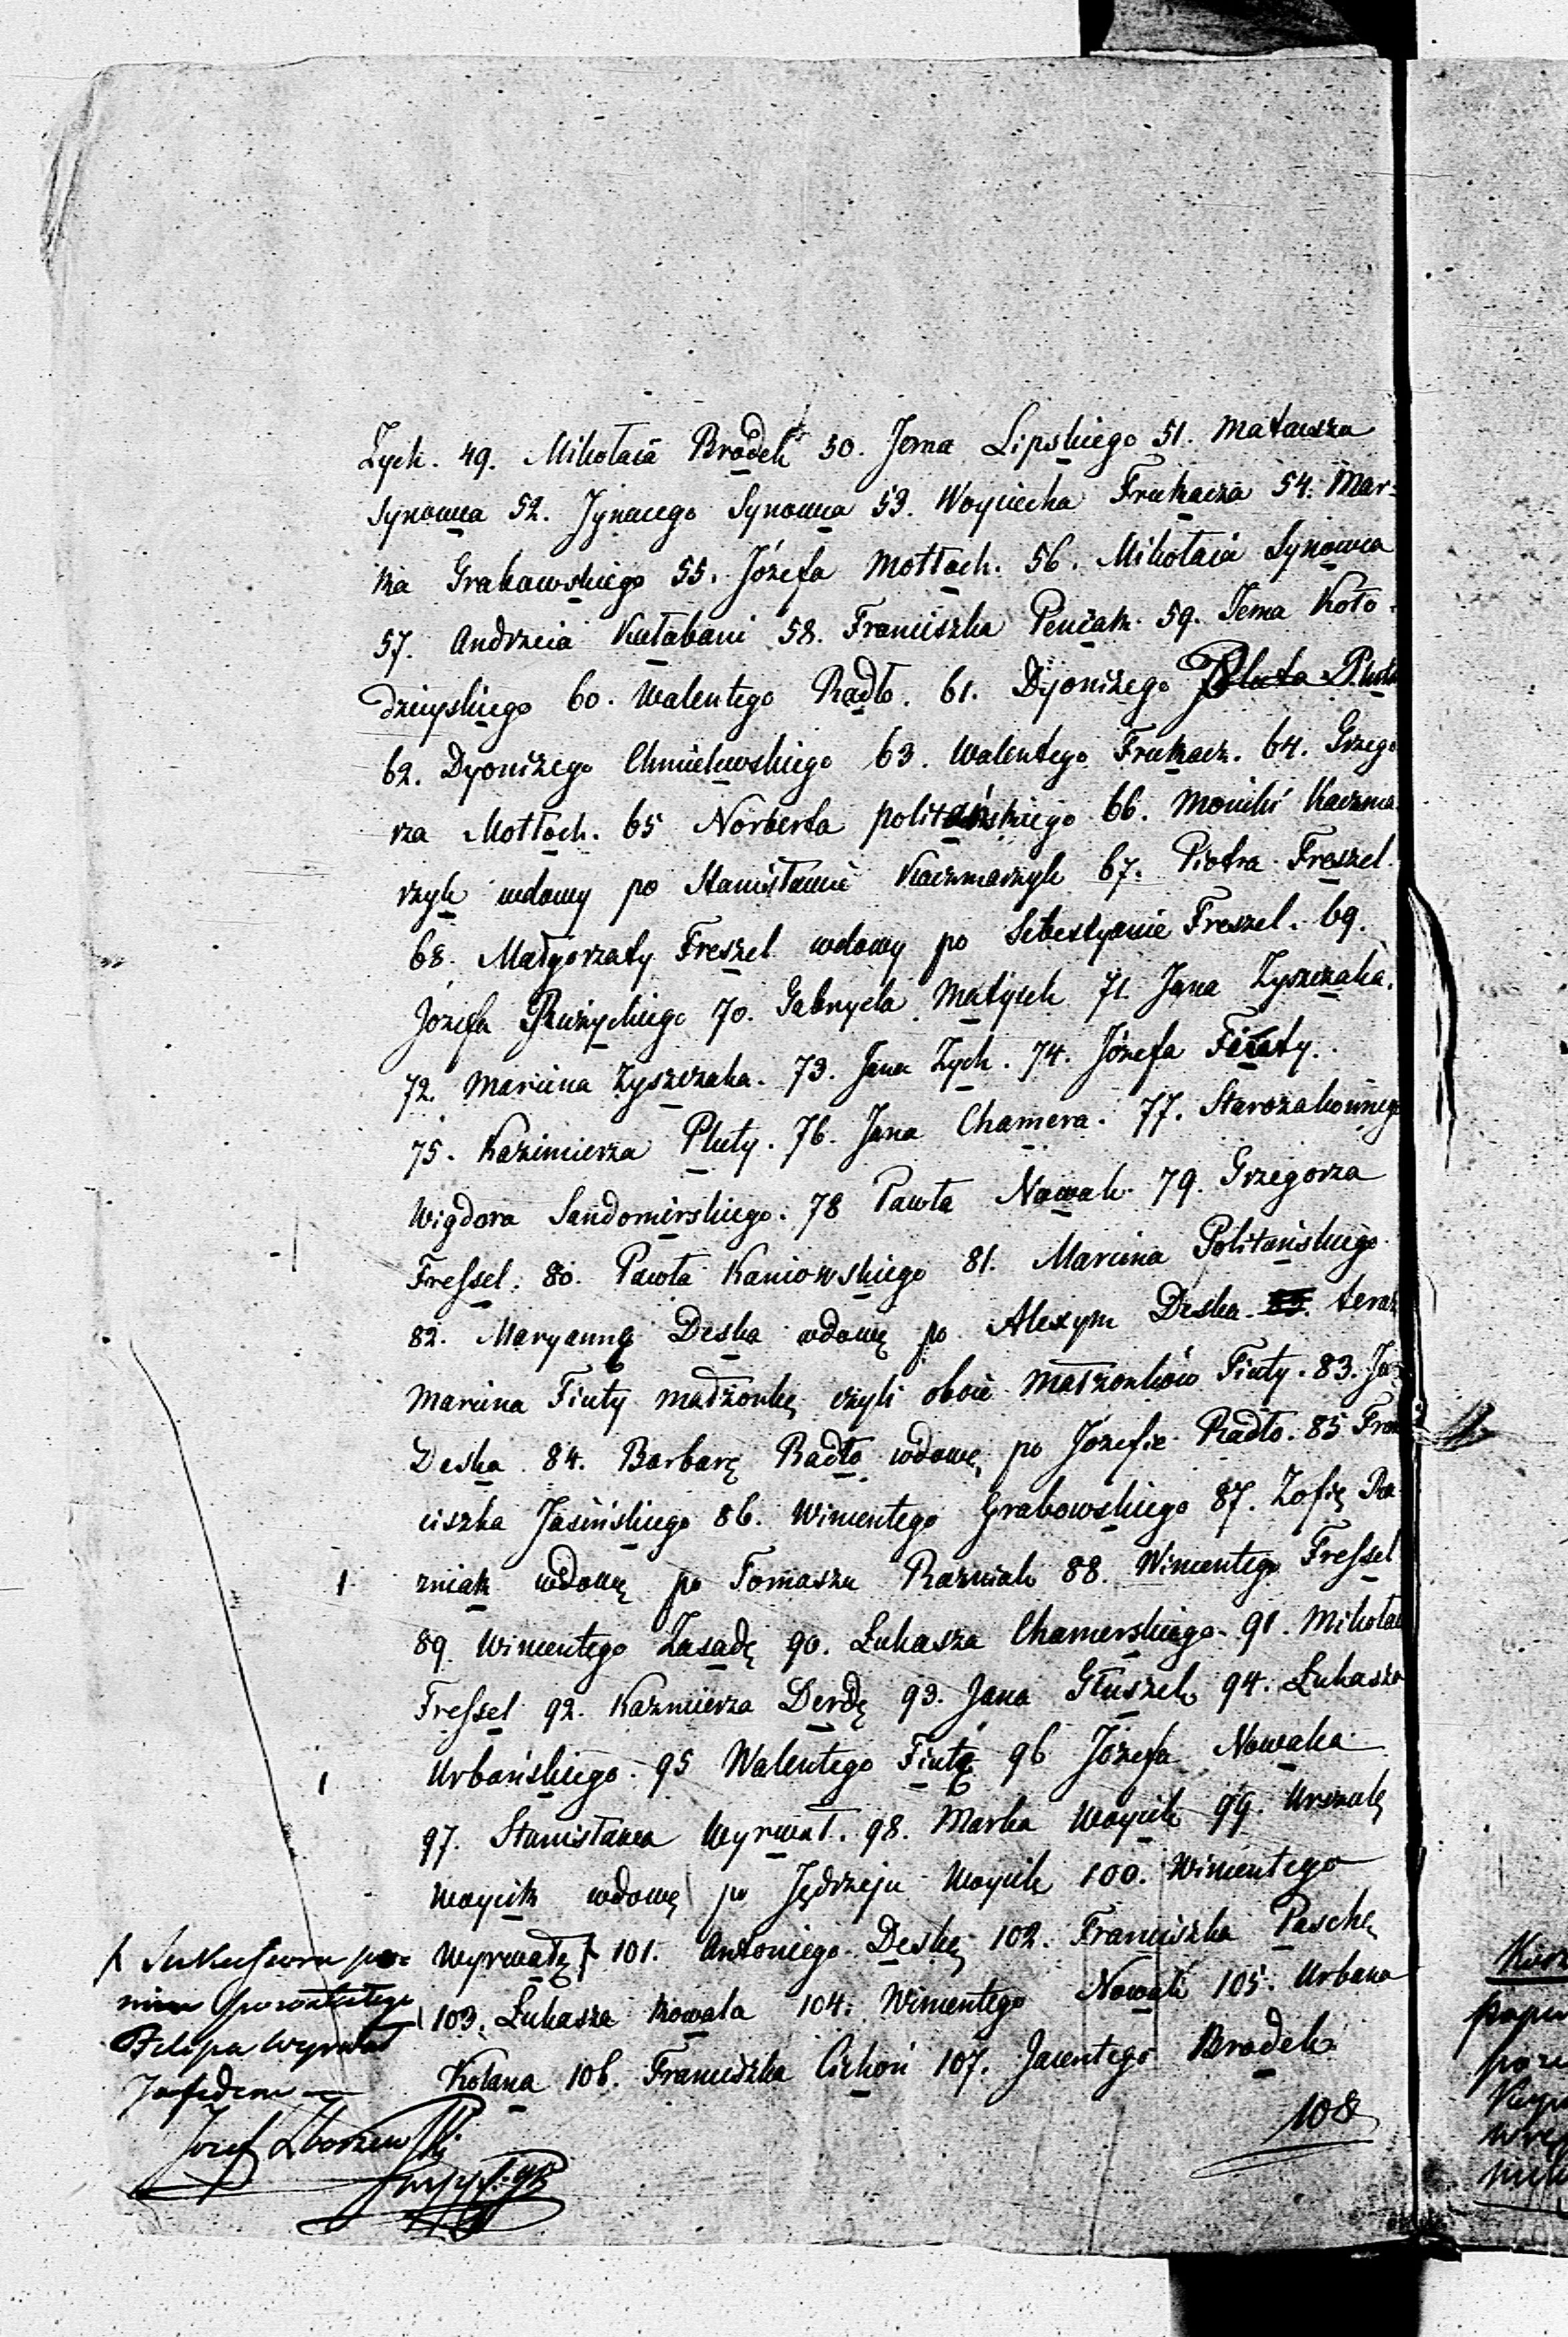 Zych. 49. Mikołaia Bradek 50. Jerna Lipskiego 51. Mateusza
Synowca 52. Jgnacego Synowca 53. Woyciecha Frukacza 54. Mar-
ka Grabowskiego 55. Józefa Mottoch. 56. Mikołaia Synowca
57. Andrzeia Kułabani 58. Franciszka Penczak. 59. Jerna Koło-
dzieyskiego 60. Walentego Radło. 61. Dyonizego Pluta
62. Dyonizego Chmielewskiego 63. Walentego Frukacz. 64. Grzego
rza Mottoch. 65 Norberta politańskiego 66. Moniki Kaczma
rzyk wdowy po Stanisławie Kaczmarzyk 67. Piotra Freszel.
68. Małgorzaty Freszel wdowy po Sebestyanie Freszel. 69.
Józefa Ruzyckiego 70. Gabryela Matysek 71. Jana Zyszczaka.
72. Marcina Zyszczaka. 73. Jana Zych. 74. Józefa Fiuty.
75. Kazimierza Pluty. 76. Jana Chamera. 77. Starozakonnego
Wigdora Sandomirskiego. 78 Pawła Nowak. 79. Grzegorza
Fressel. 80. Pawła Kaniowskiego 81. Marcina Politańskiego
82. Maryannę Deska wdowę po Alexym Deska. teraz
Marcina Fiuty małżonkę czyli oboie Małżonków Fiuty. 83. Ja
Deska 84. Barbarę Radło wdowę po Józefie Radło. 85 Fran
ciszka Jasińskiego 86. Wincentego Grabowskiego 87. Zofię Ra
zniak wdowę po Tomaszu Razniak 88. Wincentego Fressel
89. Wincentego Zasadę 90. Łukasza Chamerskiego. 91. Mikołaia
Fressel 92. Kazmierza Derdę 93. Jana Głuszek 94. Łukasza
Urbańskiego. 95 Walentego Fiutę 96 Józefa Nowaka
97. Stanisława Wyrwał. 98. Marka Woycik 99. Urszulę
Woycik wdowę po Jędrzeju Woycik 100. Wincentego
Wyrwałę 101. Antoniego Deskę 102. Franciszka Paschę
103. Łukasza Kowala 104. Wincentego Nowak 105. Urbana
Kolana 106. Franciszka Cichoń 107. Jacentego Bradek.
108
Sukcessora po
nim pozostałego
Filipa Wyrwał
Józef